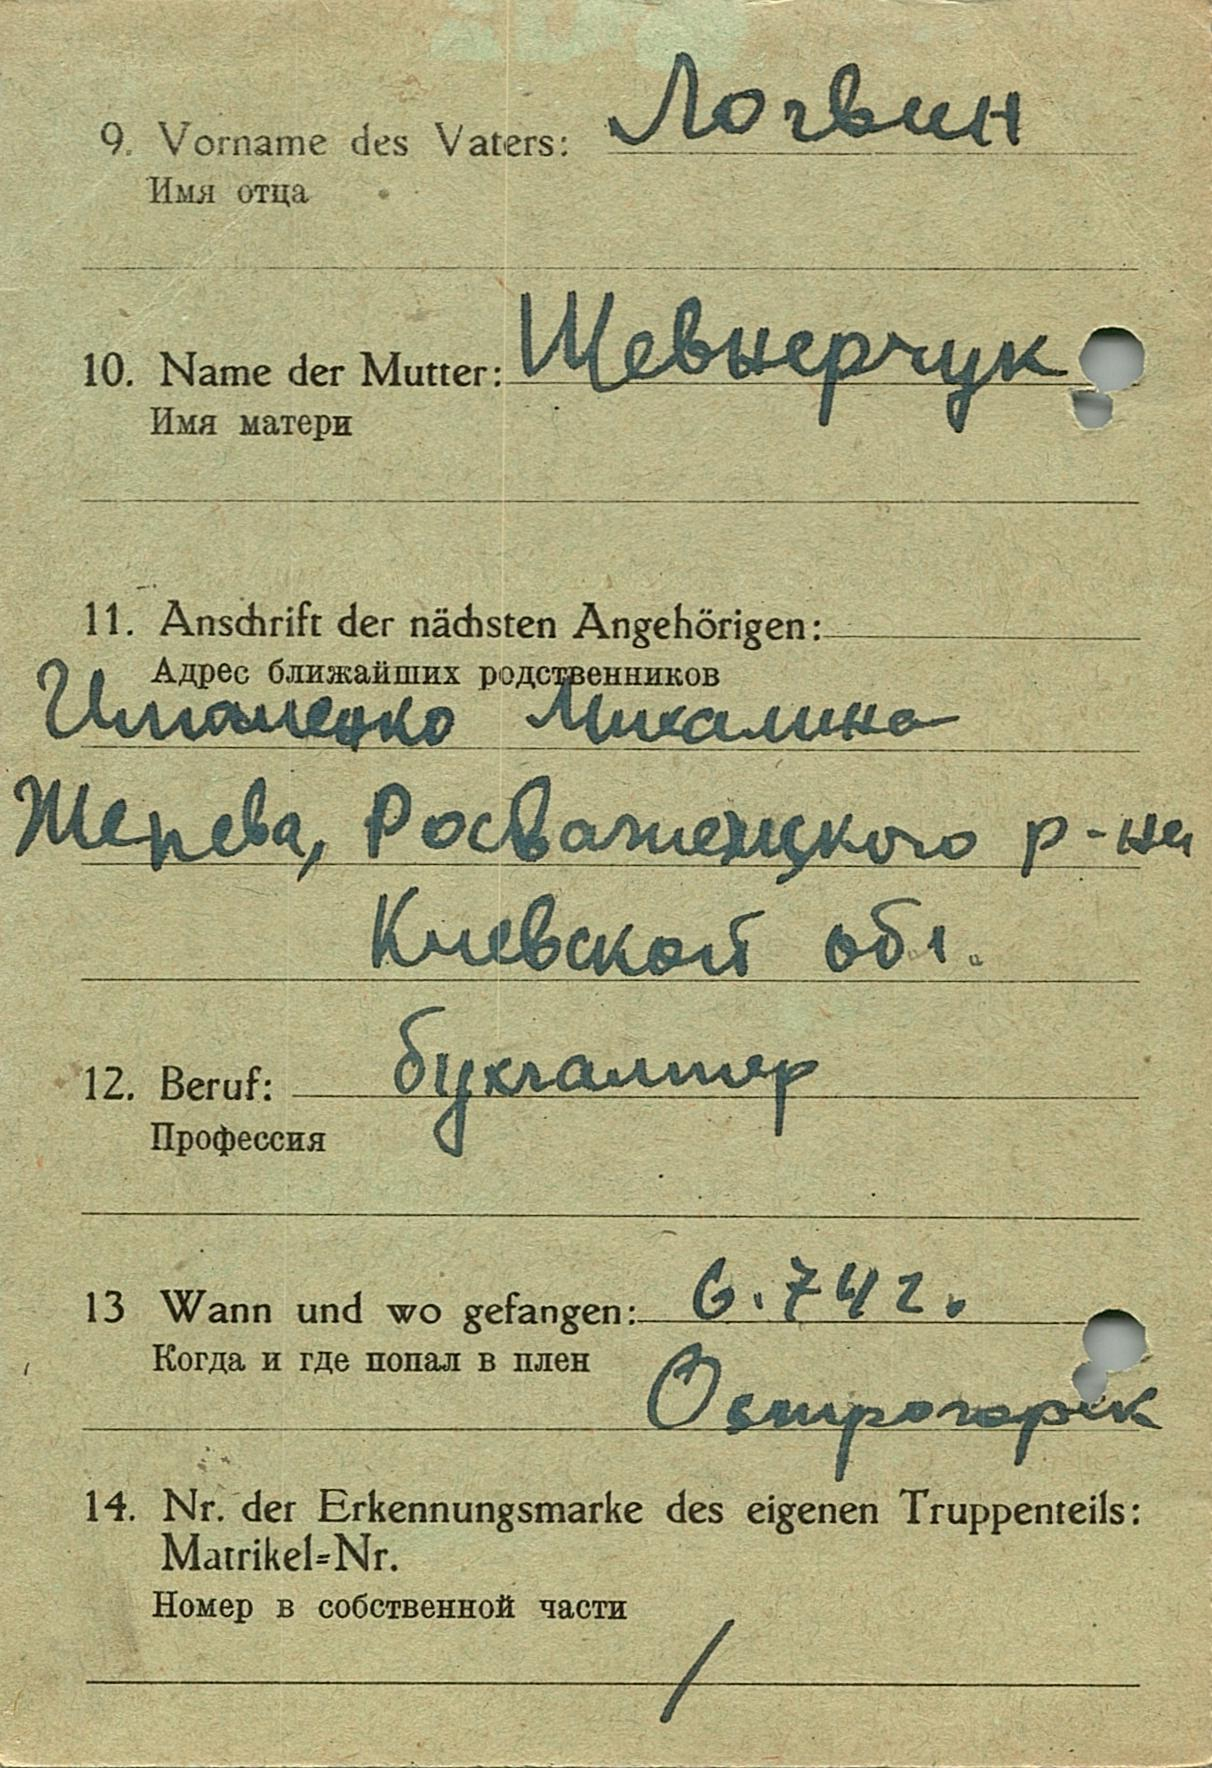 9. Vorname des Vaters: Логвин
Имя отца
10. Name der Mutter: Шевнерчук
Имя матери
11. Anschrift der nächsten Angehörigen:
Адрес ближайших родственников
Михалина
Росважецкого р-на
Киевской обл.
12. Beruf: бухгалтер
Профессия
13 Wann und wo gefangen: 6.742.
Когда и где попал в плен
14. Nr. der Erkennungsmarke des eigenen Truppenteils:
Matrikel=Nr.
Номер в собственной части
/